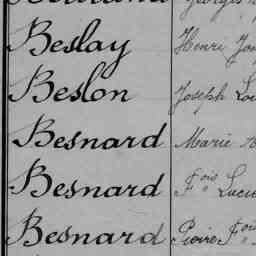 Beslay Henri
Beslon Joseph
Besnard Marie
Besnard F.ois
Besnard Pierre F.ois